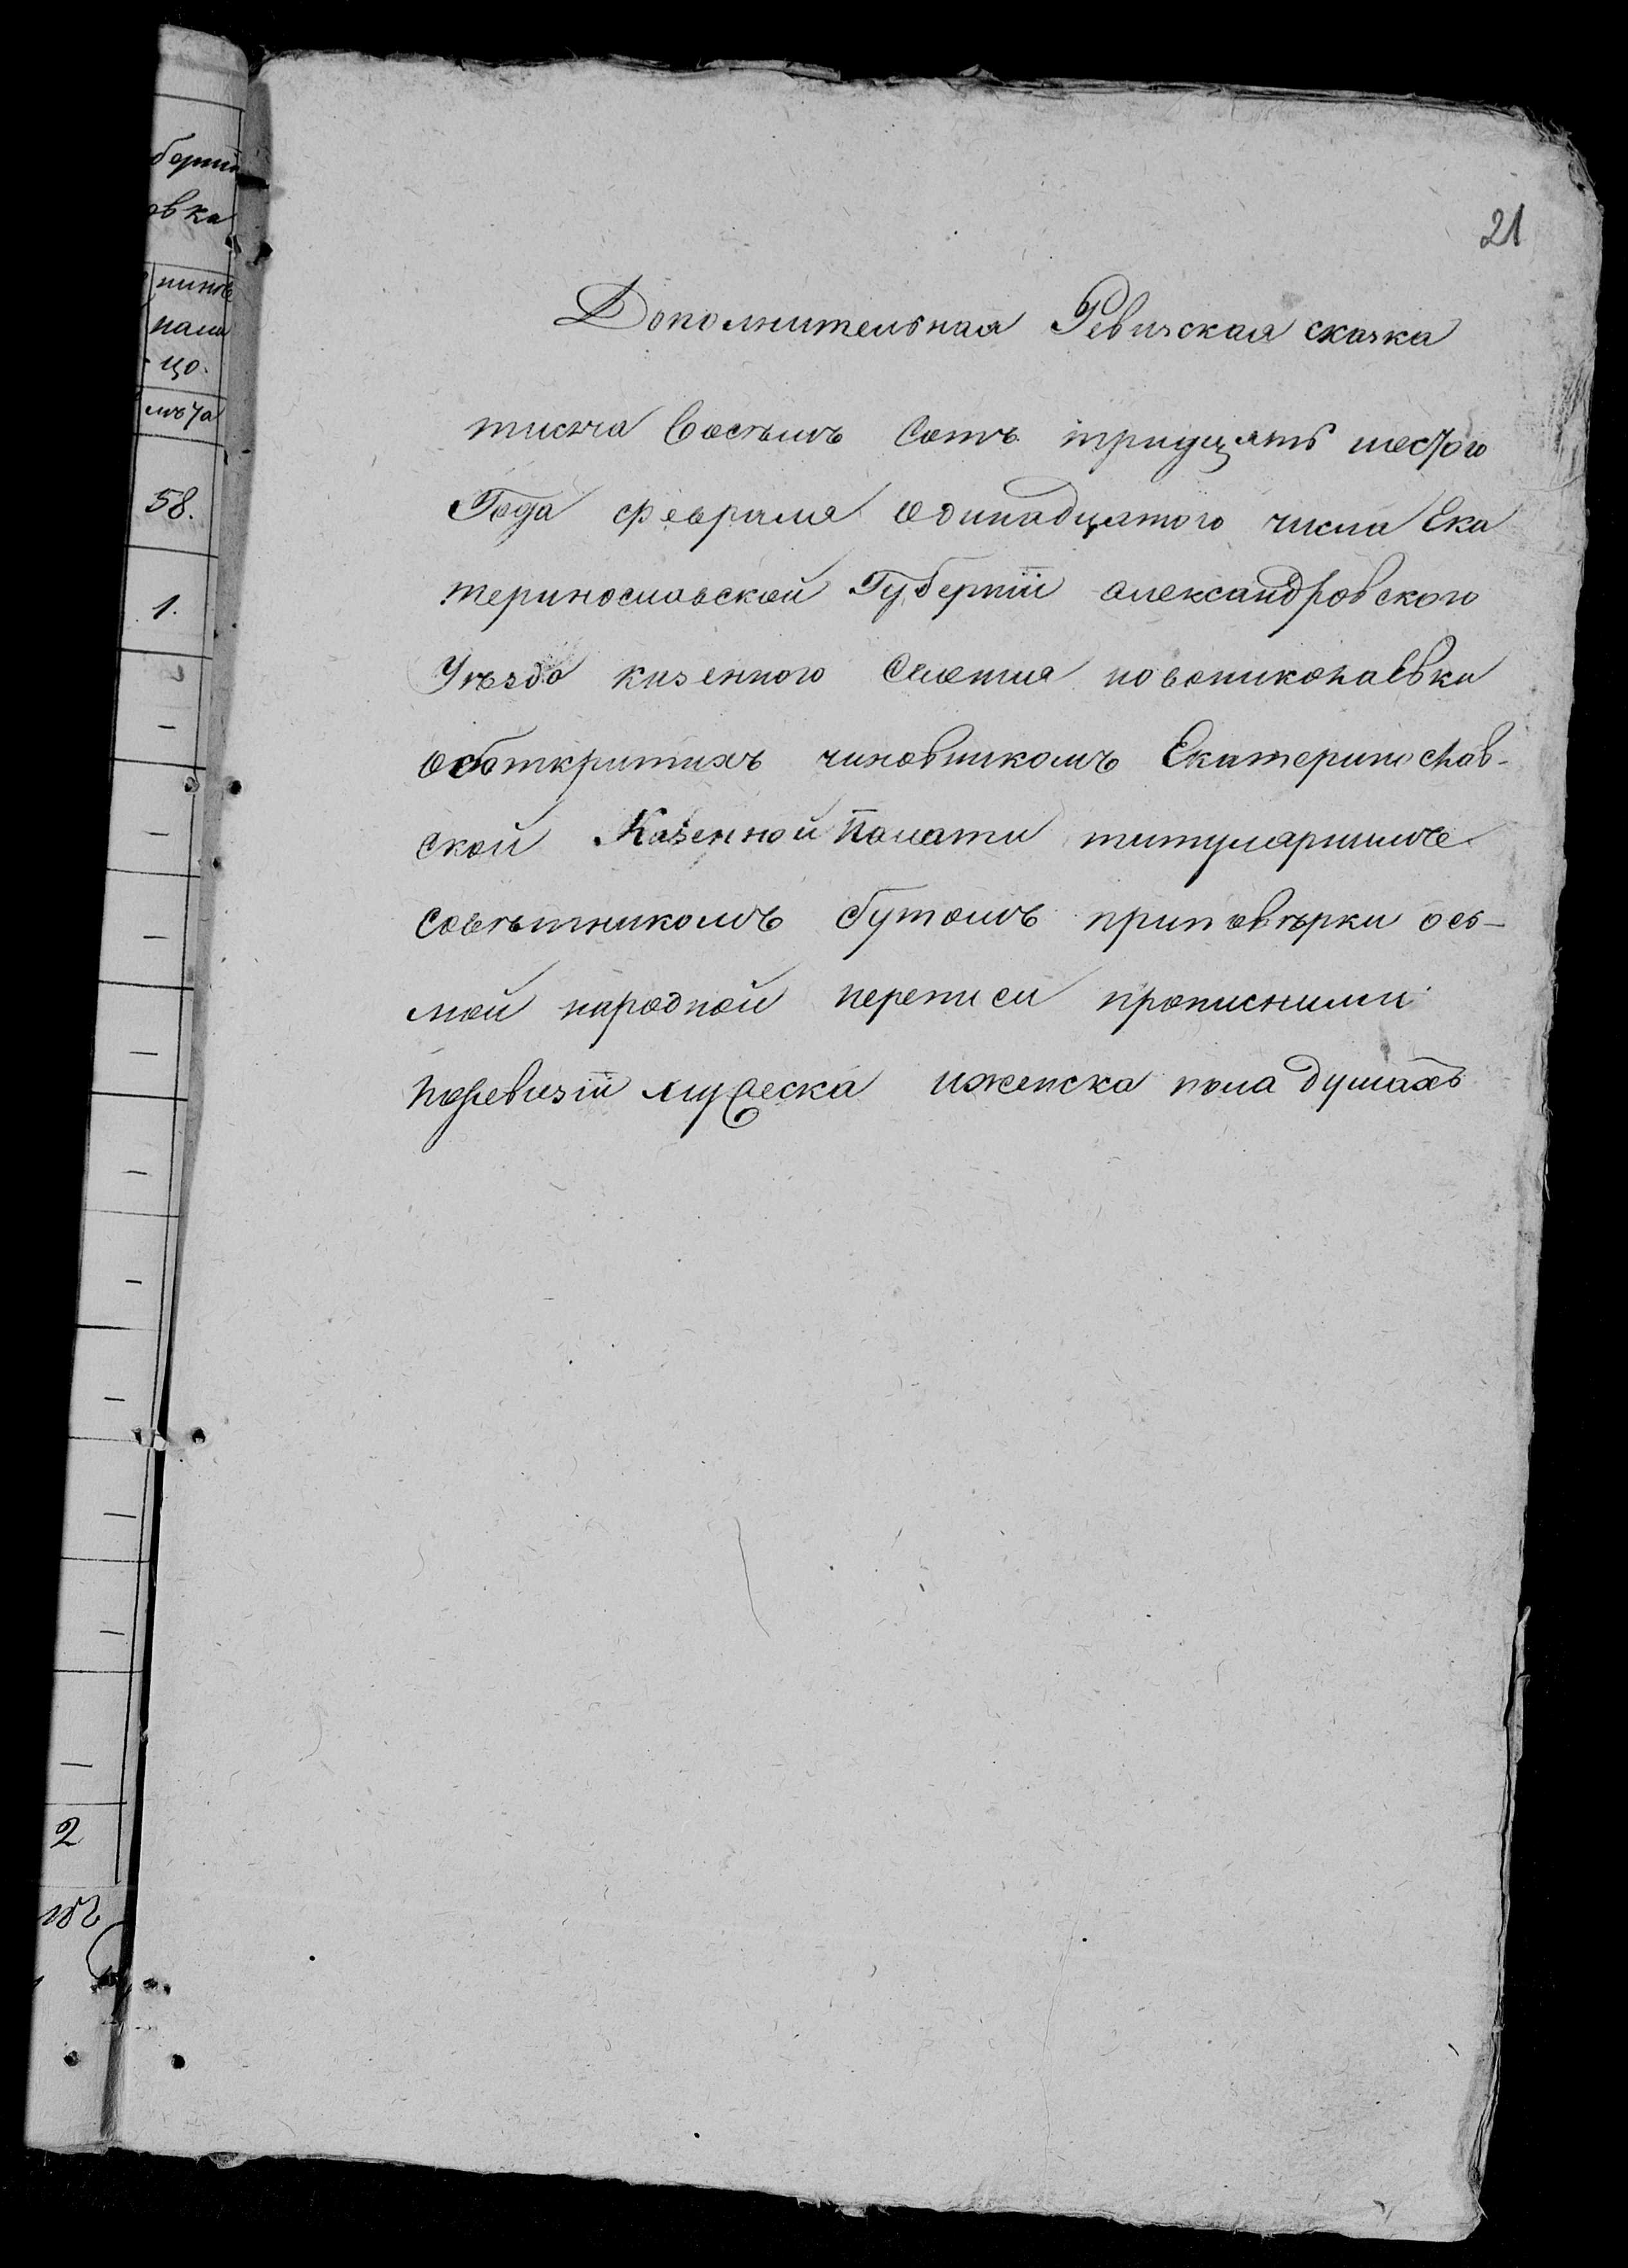 21
Дополнительная Ревизская сказка
тисяча Восъемъ Сотъ тридцять шестого
Года февраля одинадцятого числа Ека
теринославской Губернїи александровского
Уѣзда казенного Селения новониколаевки
оботкритихъ чиновникомъ Екатеринослав-
ской Казенной Полати титулярнимъ
совѣтникомъ бутомъ приповѣрки ось-
мой народной переписи прописними
поревизїи мужеска иженска пола душахъ
берніи
овка
58.
1.
2